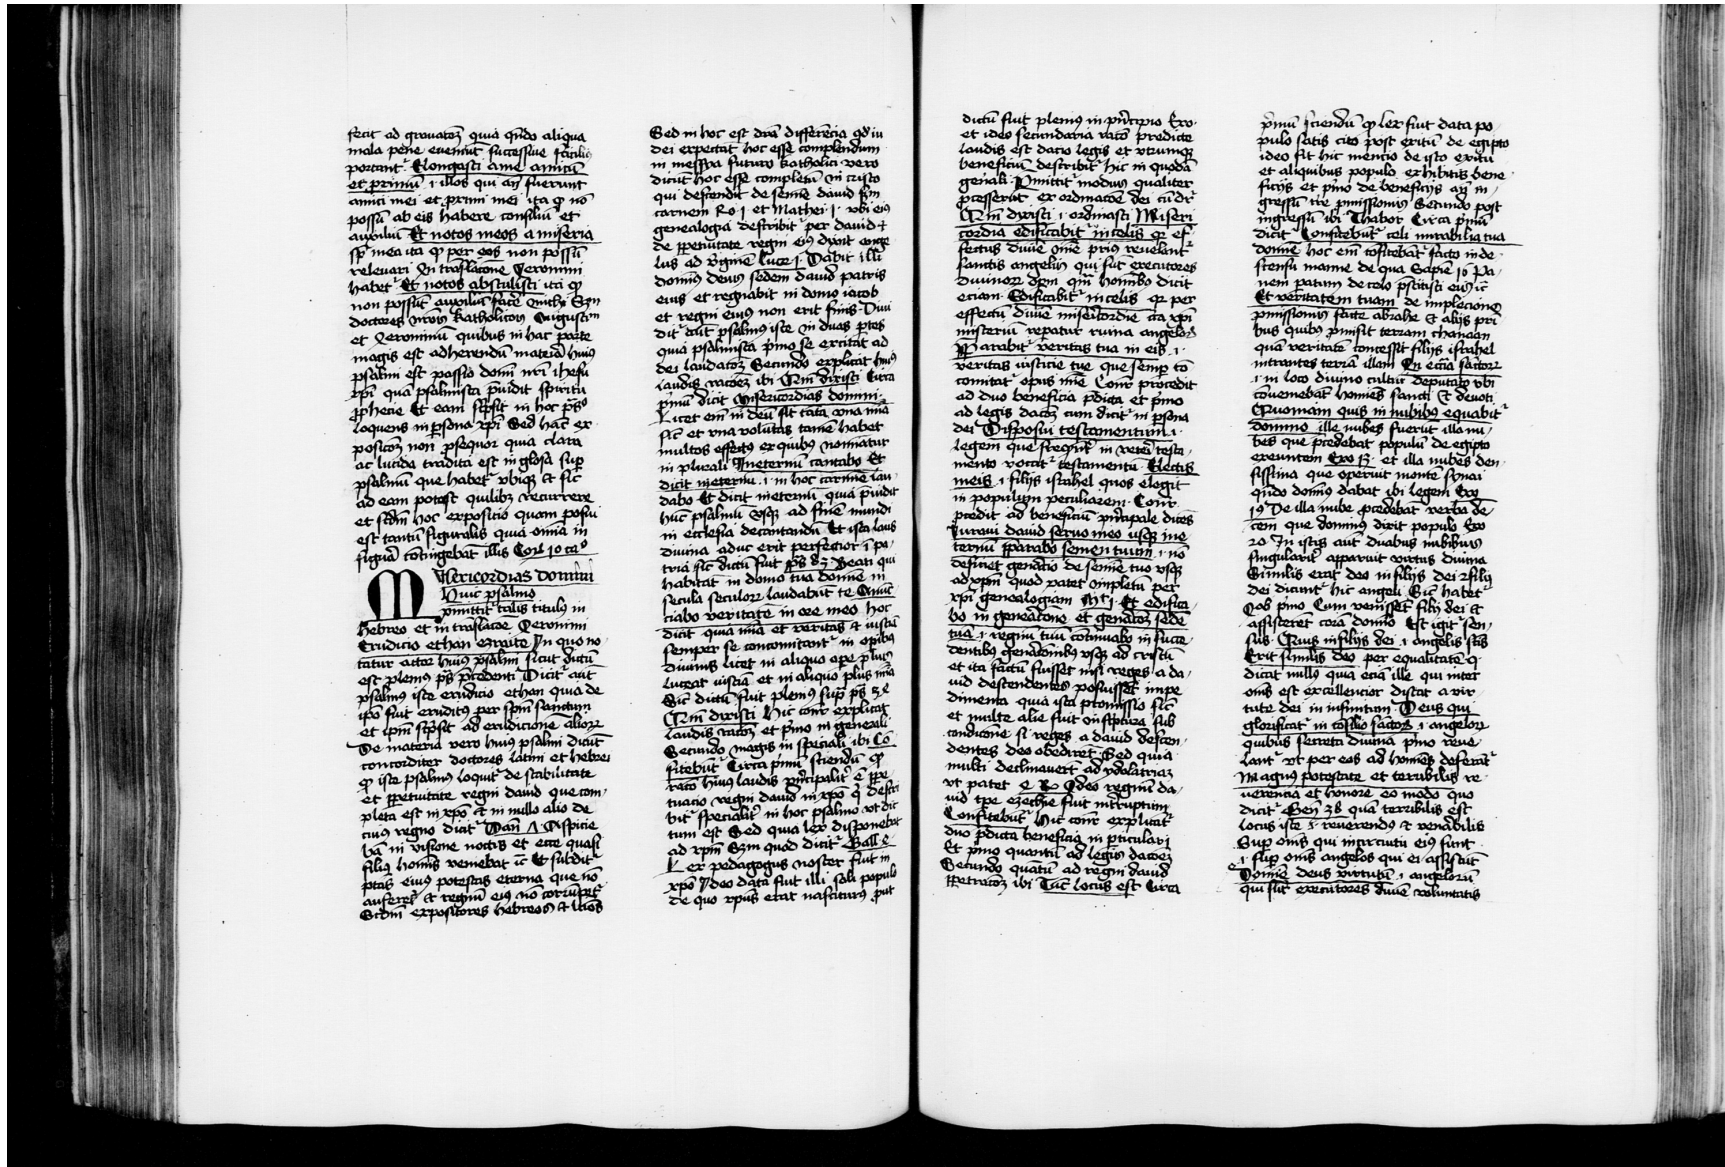 fecit ad grauatōꝫ quia qn̄do aliqua
mala pene eueniūt successiue facili9
portant᷑ Elongasti a me amicū
et proximū ·i· illos qui an̄ fuerunt
amici mei et proximi mei ita ꝙ nō
possū ab eis habere consiliū et
auxiliū Et notos meos a miseria
mea ita ꝙ per eos non possū
releuari In trāslacione Jeronimi
habet᷑ Et notos abstulisti ita ꝙ
non possūt auxiliū facē michi Scdm
doctores nr̄os katholicos Augustinū
et Jeronimū quibus in hac parte
magis est adherendū materia hui9
psalmi est passio domī nr̄i ihesu
xp̄i quā psalmista p̄uidit spiritu
ꝓphecie Et eam scͥpsit in hoc ps̄o
loquens in ꝑsona xp̄i Sed hāc ex
posicōꝫ non ꝓsequor quia clara
ac lucida tradita est in glosa sup̄
psalmū que habet᷑ vbiqꝫ et sic
ad eam potest quilibꝫ recurrere
et scdm hoc expositio quam posui
est tantū figuralis quia omīa in
figurā cōtingebāt illis Cor 10 ca°
Misericordias domini
Huic psalmo
p̄mittit᷑ talis titulus in
hebreo et in trāslacōe Jeronimi
Erudicio ethan ezraite In quo no
tatur actor hui9 psalmi sicut dictū
est plenius ps̄ p̄cedenti Dicit᷑ aut
psalmus iste erudicio ethan quia de
ip̄o fuit eruditus per spm̄ sanctum
et ip̄m scͥpsit ad erudicionē alioꝝ
De materia vero hui9 psalmi dicūt
concorditer doctores latini et hebrei
ꝙ iste psalmus loquit᷑ de stabilitate
et ꝑpetuitate regni dauid que com
pleta est in xp̄o et in nullo alio de
cui9 regno dicit᷑ Dan̄ Λ Aspicie
bā in visione noctis et ecce quasi
filius homīs veniebat ⁊c̄ Et subdit᷑
ptās eius potestas eterna que nō
auferet᷑ et regnū eius nō corrūpet᷑
Scdm expositores hebreos et latīos
Sed in hoc est dr̄a differēcia qd iu
dei expectāt hoc esse complendum
in messya futuro katholici vero
dicūt hoc esse completū in cristo
qui descendit de semīe dauid scdm
carnem Ro 1 et Mathei 1 vbi ei9
genealogia describit᷑ per dauid et
de ꝑpetuitate regni ei9 dixit ange
lus ad v̄ginē Luce 1 Dabit illi
domin9 deus sedem dauid patris
eius et regnabit in domo iacob
et regni eius non erit finis Diui
dit᷑ aut psalmus iste in duas p̄tes
quia psalmista p̄mo se excitat ad
dei laudatōꝫ Secundo explicat hui9
laudis racōeꝫ ibi Qm̄ dixisti Circa
p̄mū dicit Misericordias domini
Licet em̄ in deū sit tātū vna mīa
sicut et vna volūtas tamē habet
multos effectus ex quibus nomīatur
in plurali In eternū cantabo Et
dicit in eternū ·i· in hoc carmīe lau
dabo Et dicit in eternū quia p̄uidit
hūc psalmū vsqꝫ ad finē mundi
in ecclesia decantandū Et ista laus
diuina adhuc erit perfectior ī pa
tria sic dictū fuit ps̄ 83 Beati qui
habitāt in domo tua domīe in
secula seculoꝝ laudabūt te Annū
ciabo veritatē in ore meo Hoc
dicit quia mīa et veritas et iusticia
semper se concomitant᷑ in opibus
diuinis licet in aliquo ope plus
luceat iusticia et in aliquo plus mīa
Sic dictū fuit plenius sup̄ ps̄ 32
Qm̄ dixisti Hic cōnr̄ explicat
laudis racōeꝫ et p̄mo in generali
Secundo magis in speciali ibi Cō
fitebūt᷑ Circa p̄mū sciendū ꝙ
racio hui9 laudis p̄ncipalit᷑ ē ꝑpe
tuacio regni dauid in xp̄o que descri
bit᷑ specialit᷑ in hoc psalmo vt dic
tum est Sed quia lex disponebat
ad xp̄m Scdm quod dicit᷑ Gall 2
Lex pedagogus noster fuit in
xp̄o Ideo data fuit illi soli populo
de quo xp̄us erat nasciturus ꝓut
dictū fuit plenius in p̄ncipio Exo
et ideo secundaria racō predicte
laudis est dacio legis et vtrumqꝫ
beneficiū describit᷑ hic in quodā
gen̄ali Pmittit᷑ modus qualiter
ꝓcesserūt ex ordinacōe dei cū dr̄
Qm̄ dixisti ·i· ordinasti Miseri
cordia edificabit᷑ in celis qz ef
fectus diuīe mīe prius reuelant᷑
sanctis angelis qui sūt executores
diuinoꝝ opm̄ quā homībꝫ dicit
eciam Edificabit᷑ in celis qz per
effectū diuīe misericordie cā xp̄i
misteriū repatur ruina angeloꝝ
Pparabit᷑ veritas tua in eis ·i·
veritas iusticie tue que semp̄ cō
comitat᷑ opus mīe Cōnr̄ procedit
ad duo beneficia p̄dicta et p̄mo
ad legis dacōꝫ cum dicit᷑ in ꝑsona
dei Disposui testamentum ·i·
legem que frequent᷑ in veteri testa
mento vocat᷑ testamentū Electis
meis ·i· filijs israhel quos elegit
in populum peculiarem Cōnr̄
ꝓcedit ad beneficiū p̄ncipale dicēs
Iuraui dauid seruo meo vsqꝫ in e
ternū ꝑparabo semen tuum ·i· nō
deficiet genāto de semīe tuo vsqꝫ
ad xp̄m quod patet cōpletū per
xp̄i genealogiam Mt 1 Et edifica
bo in genacōne et genacōꝫ sedē
tuā ·i· regnū tuū cōtinuabo in succe
dentibus genatōnibus vsqꝫ ad cristū
et ita factū fuisset nisi reges a da
uid descendentes posuissēt impe
dimenta quia ista promissio sicut
et multe alie fuit in scͥptura sub
condicione si reges a dauid descen
dentes deo obediret Sed quia
multi declinauerūt ad ydolatriaꝫ
vt patet 2 Rꝫ Ideo regnū da
uid tpe ezechie fuit int᷑ruptum
Confitebūt᷑ Hic cōnr̄ explicat᷑
duo p̄dicta beneficia in pticulari
Et p̄mo quantū ad legis dacōeꝫ
Secundo quātū ad regni dauid
ꝑpetuacōeꝫ ibi Tūc locus es Circa
p̄mū sciendū ꝙ lex fuit data po
pulo satis cito post exitū de egipto
ideo fit hic mencio de isto exitu
et aliquibus populo exhibitis bene
ficijs et p̄mo de beneficijs an̄ in
gressū tr̄e ꝓmissionis Secundo post
ingressū ibi Thabor Circa p̄mū
dicit Confitebūt᷑ celi mirabilia tua
domīe hoc em̄ cōfitebāt᷑ facto in de
scensu manne de qua Sapie 16 Pa
nem paratum de celo p̄stitisti eis ⁊c̄
Et veritatem tuam de implecione
ꝓmissionis facte abrahe et alijs pri
bus quibus ꝓmisit terram chanaan
quā veritatē concessit filijs israhel
intrantes terrā illam In ecc̄ia sanctoꝝ
·i· in loco diuino cultui deputato vbi
cōueniebāt homīes sancti et deuoti
Quoniam quis in nubibus equabit᷑
domino ille nubes fuerūt illa nu
bes que p̄cedebat populū de egipto
exeuntem Exo 13 et illa nubes den
sissima que operuit montē synai
qn̄do domin9 dabat ibi legem Exo
19 De illa nube ꝓcedebāt verba de
cem que dominus dixit populo Exo
20 In istis aut duabus nubibus
singularit᷑ apparuit virtus diuina
Similis erit deo in filijs dei Filij
dei dicūt᷑ hic angeli Sic habet᷑
Iob p̄mo Cum venissēt filij dei et
assisterēt corā domīo Est igit᷑ sen
sus Quis in filijs dei ·i· angelis sāctis
Erit similis deo per equalitatē q
dicat nullꝰ quia eciā ille qui inter
om̄s est excellencior distat a vir
tute dei in infinitum Deus qui
glorificat᷑ in cōsilio sāctoꝝ ·i· angeloꝝ
quibus secreta diuina p̄mo reue
lant᷑ vt per eos ad homīes deferāt᷑
Magnus potestate et terribilis re
uerencia et honore eo modo quo
dicit᷑ Gen̄ 28 quā terribilis est
locus iste ·i· reuerendus et venābilis
Sup̄ om̄s qui in circuitu eius sunt
·i· sup̄ om̄s angelos qui ei assistūt
Domīe deus virtutū ·i· angeloꝝ
qui sūt executores diuīe voluntatis